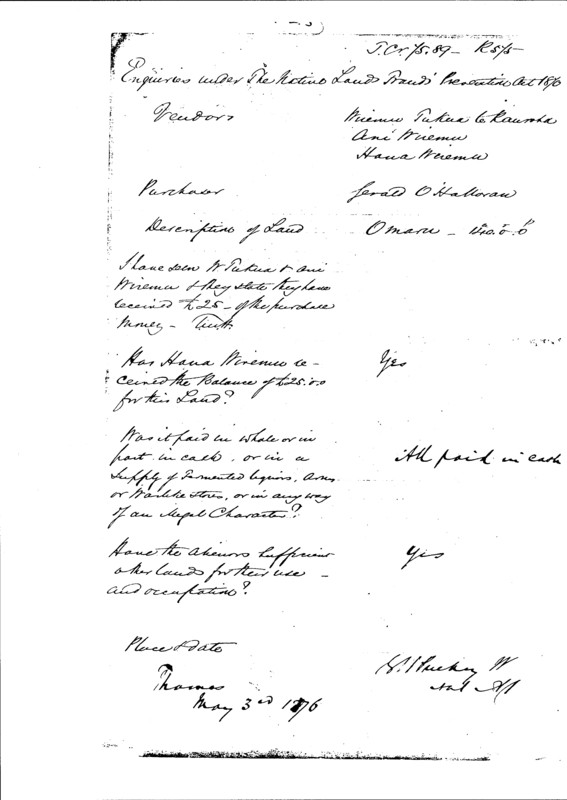 T.Cr. 75.89 - R 5/5-
Enquiries under The Native Land Frauds Prevention Act 1870
Vendors Wiremu Tukua te Rauroha
Ani Wiremu
Hana Wiremu
Purchaser Gerald O'Halloran
Description of Land Omaru -
I have seen W Tukua & Ani
Wiremu & they state they have
received £25 - of the purchase
Money -
Has Hana Wiremu re-
ceived the Balance of £25.0.0
for this Land? Yes
Was it paid in whole or in
part in cash, or in a
Supply of Fermented liquors, Arms
or Warlike stores, or in any way
of an illegal Character? All paid in cash
Have the alienors sufficient
other lands for their use -
and occupation? Yes
Place & date
Thames
May 3rd 1876
Puckey